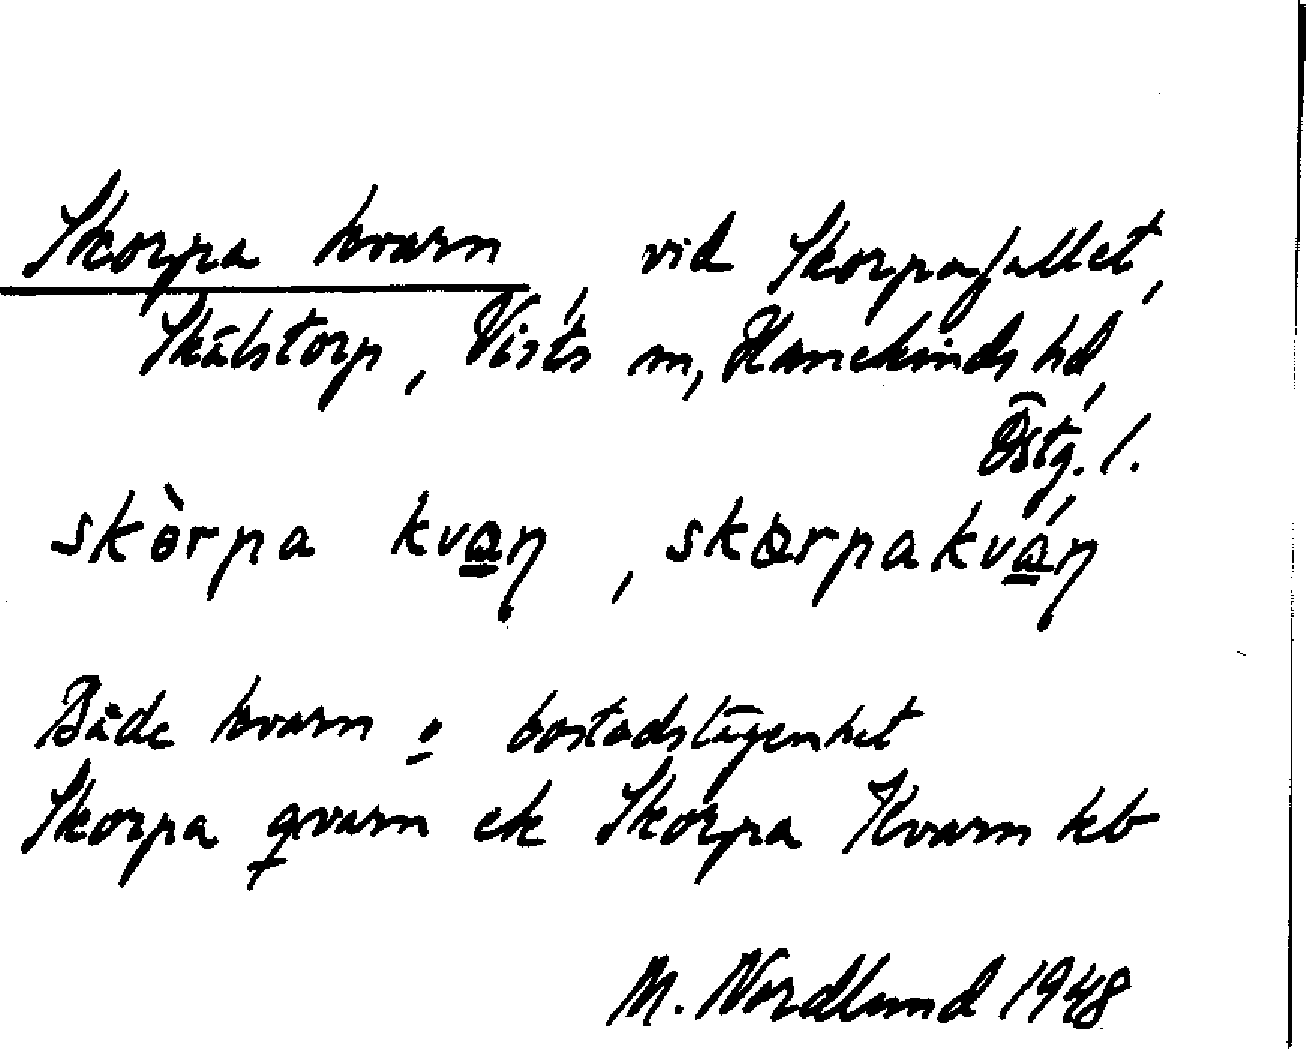 Skorpa kvarn, vid Skorpafallet,
Skälstorp, Vists sn, Hanekinds hd,
Östg. l.
skòrpa kvaɳ, skorpakváɳ
Både kvarn o bostadslägenhet
Skorpa qvarn ek Skorpa Kvarn kb
M. Nordlund 1948